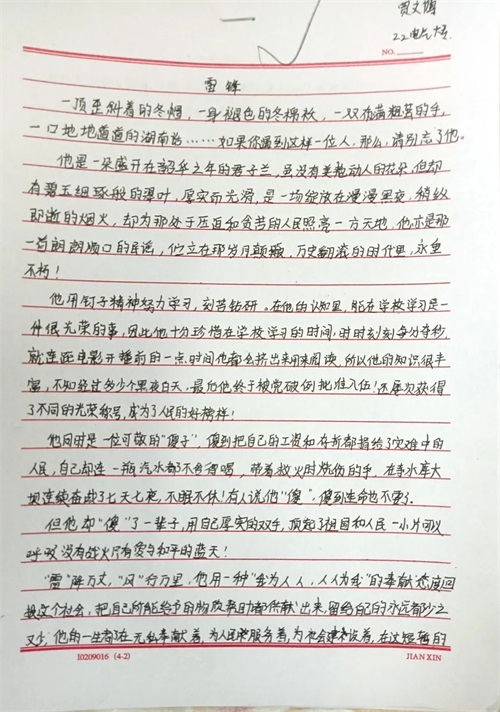 一
贾文博
22电气大专
NO.
雷锋
一顶歪斜着的冬帽，一身褪色的冬棉袄，一双布满粗茧的手，
一口地地道道的湖南话……如果你遇到这样一位人，那么，请别忘了他。
他是一朵盛开在韶华之年的君子兰，虽没有美艳动人的花朵，但却
有碧玉细琢般的翠叶，厚实而光滑，是一场绽放在漫漫黑夜，稍纵
即逝的烟火，却为那处于压迫和贫苦的人民照亮一方天地，他亦是那
一首朗朗顺口的民谣，伫立在那岁月颠簸，历史翻滚的时代里，永垂
不朽！
他用钉子精神努力学习，刻苦钻研。在他的认知里，能在学校学习是一
件很光荣的事，因此他十分珍惜在学校学习的时间，时时刻刻每分每秒，
就连距电影开幕前的一点时间也都会挤出来用来阅读，所以他的知识很丰
富，不知经过多少个黑夜白天，最后他终于被党破例批准入伍！还屡次获得
了不同的光荣称号，成为了人民的好榜样！
他同时是一位可敬的“傻子”，傻到把自己的工资和存折都捐给了灾难中的
人民，自己却连一瓶汽水都不舍得喝，带着救火时烧伤的手，在手水库大
坝连续奋战了七天七夜，不眠不休！有人说他“傻”，傻到生命也不要了。
但他却“傻”了一辈子，用自己厚实的双手，顶起了祖国和人民一小片可以
呼吸没有战火只有爱与和平的蓝天！
“雷”降万丈，“风”行万里，他用一种“我为人人，人人为我”的奉献态度回
报这个社会，把自己所能给予的物效率助都供献出来，留给自己的永远都少之
又少，他的一生都在无私奉献着，为人民服务着，为社会建设着，在这短暂的
10209016 (4-2)
JIAN XIN